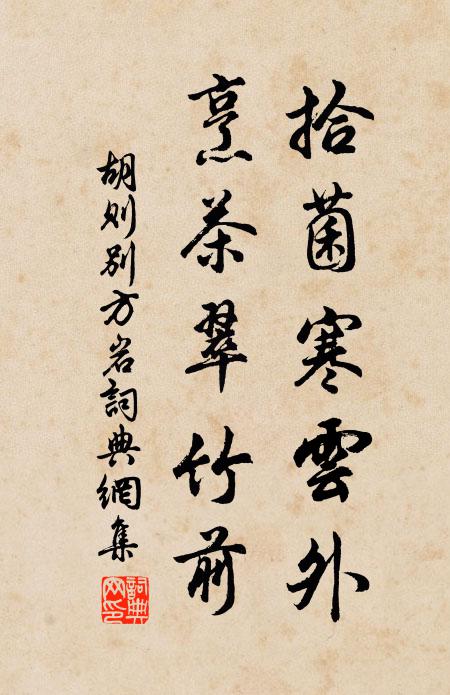 拾菌寒雲外
烹茶翠竹前
胡則別方岩詞典網集
詞典網印